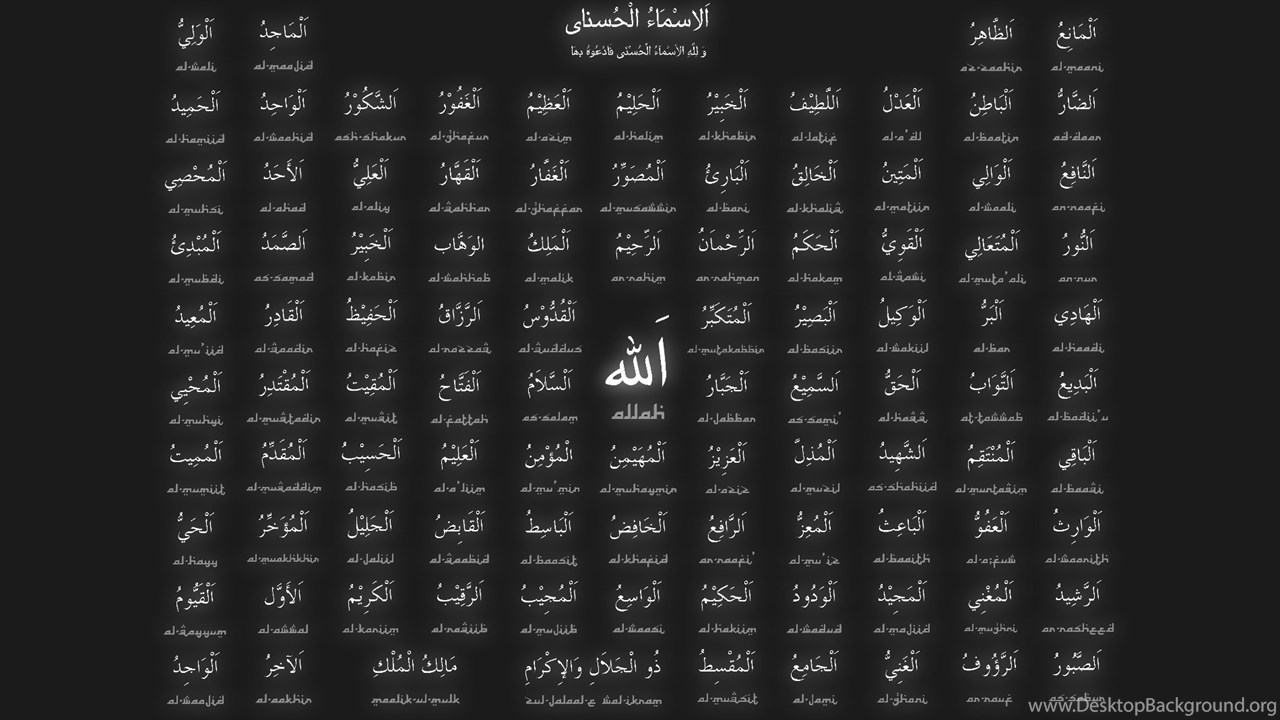 اَلاِسْمَاءُ الْحُسناى
وَ لِلّٰهِ الاَسْمَاءُ الْحُسْنٰى فَادْعُوهُ بِهَا
اَلْوَلِيُّ اَلْمَاجِدُ اَلظَّاهِرُ اَلْمَانِعُ
al-wali al-maajid az-zaahir al-maani
اَلْحَمِيدُ اَلْوَاحِدُ اَلشَّكُوْرُ اَلْغَفُوْرُ اَلْعَظِيْمُ اَلْحَلِيْمُ اَلْخَبِيْرُ اَللَّطِيْفُ اَلْعَدْلُ اَلْبَاطِنُ اَلضَّارُّ
al-hamiid al-waahid ash-shakur al-ghafur al-azim al-halim al-khabir al-latif al-a'dl al-baatin ad-daar
اَلْمُحْصِي اَلأَحَدُ اَلْعَلِيُّ اَلْقَهَّارُ اَلْغَفَّارُ اَلْمُصَوِّرُ اَلْبَارِئُ اَلْخَالِقُ اَلْمَتِينُ اَلْوَالِي اَلنَّافِعُ
al-muhsi al-ahad al-aliy al-qahhar al-ghaffar al-musawwir al-bari al-khaliq al-matiin al-waali an-naafi
اَلْمُبْدِئُ اَلصَّمَدُ اَلْخَبِيْرُ الوَهَّاب اَلْمَلِكُ اَلرَّحِيْمُ اَلرَّحْمٰانُ اَلْحَكَمُ اَلْقَوِيُّ اَلْمُتَعَالِي اَلنُّورُ
al-mubdi as-samad al-kabir al-wahhab al-malik ar-rahim ar-rahman al-hakam al-qawi al-muta'ali an-nur
اَلْمُعِيدُ اَلْقَادِرُ اَلْحَفِيْظُ اَلرَّزَّاقُ اَلْقُدُّوْسُ اَلْمُتَكَبِّرُ اَلْبَصِيْرُ اَلْوَكِيلُ اَلْبَرُّ اَلْهَادِي
al-mu'iid al-qaadir al-hafiz al-razzaq al-quddus al-mutakabbir al-basiir al-wakiil al-bar al-haadi
اَلله
allah
اَلْمُحْيِي اَلْمُقْتَدِرُ اَلْمُقِيْتُ اَلْفَتَّاحُ اَلسَّلاَمُ اَلْجَبَّارُ اَلسَّمِيْعُ اَلْحَقُّ اَلتَّوَابُ اَلْبَدِيعُ
al-muhyi al-muqtadir al-muqit al-fattah as-salam al-jabbar as-sami' al-haqq at-tawwab al-badii'u
اَلْمُمِيتُ اَلْمُقَدِّمُ اَلْحَسِيْبُ اَلْعَلِيْمُ الْمُؤْمِنُ اَلْمُهَيْمِنُ اَلْعَزِيْزُ اَلْمُذِلَّ اَلشَّهِيدُ اَلْمُنْتَقِمُ اَلْبَاقِي
al-mumiit al-muqaddim al-hasib al-a'liim al-mu'min al-muhaymin al-aziz al-muzil as-shahiid al-muntaqim al-baaqi
اَلْحَيُّ اَلْمُؤَخِّرُ اَلْجَلِيْلُ اَلْقَابِضُ اَلْبَاسِطُ اَلْخَافِضُ اَلرَّافِعُ اَلْمُعِزُّ اَلْبَاعِثُ اَلْعَفُوُّ اَلْوَارِثُ
al-hayy al-muakhkhir al-jaliil al-qaabid al-baasit al-khafid ar-raafi' al-mu'iz al-baaith al-a;fuw al-waarith
اَلْقَيُّومُ اَلأَوَّل اَلْكَرِيْمُ اَلرَّقِيْبُ اَلْمُجِيْبُ اَلْوَاسِعُ اَلْحَكِيْمُ اَلْوَدُودُ اَلْمَجِيْدُ اَلْمُغْنِي اَلرَّشِيْدُ
al-qayyum al-awwal al-kariim al-raqiib al-mujiib al-waasi al-hakiim al-wadud al-majiid al-mughni ar-rasheed
اَلْوَاجِدُ اَلآخِرُ مَالِكُ الْمُلْكِ ذُو الْجَلاَلِ وَالإِكْرَامِ اَلْمُقْسِطُ اَلْجَامِعُ اَلْغَنِيُّ اَلرَّؤُوفُ اَلصَّبُورُ
al-waajid al-aakhir maalik-ul-mulk zul-jalaal-e wal-ikram al-muqsit al-jami al-ghani ar-rauf as-sabur
www.DesktopBackground.org